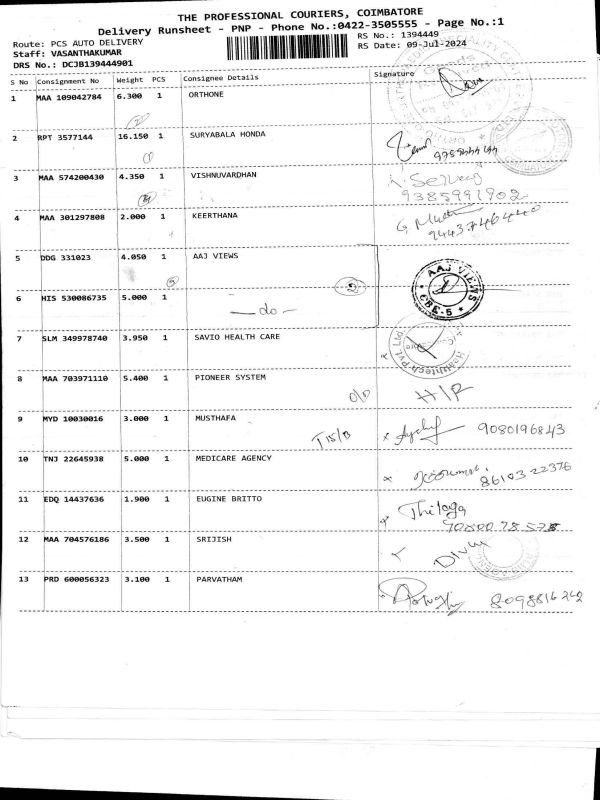 THE PROFESSIONAL COURIERS, COIMBATORE
Delivery Runsheet - PNP - Phone No.:0422-3505555 - Page No.:1
Route: PCS AUTO DELIVERY
RS No.: 1394449
Staff: VASANTHAKUMAR
RS Date: 09-Jul-2024
DRS No.: DCJB139444901
S No Consignment No Weight PCS Consignee Details Signature
1 MAA 109042784 6.300 1 ORTHONE
2 RPT 3577144 16.150 1 SURYABALA HONDA
3 MAA 574200430 4.350 1 VISHNUVARDHAN
9385991902
4 MAA 301297808 2.000 1 KEERTHANA
9443746440
5 DDG 331023 4.050 1 AAJ VIEWS
AAJ VIEWS
CBE-5
6 HIS 530086735 5.000 1
— do —
7 SLM 349978740 3.950 1 SAVIO HEALTH CARE
8 MAA 703971110 5.400 1 PIONEER SYSTEM
O/D H/R
9 MYD 10030016 3.000 1 MUSTHAFA
9080196843
10 TNJ 22645938 5.000 1 MEDICARE AGENCY
8610322376
11 EDQ 14437636 1.900 1 EUGINE BRITTO
Thilaga
12 MAA 704576186 3.500 1 SRIJISH
13 PRD 600056323 3.100 1 PARVATHAM
8098816242